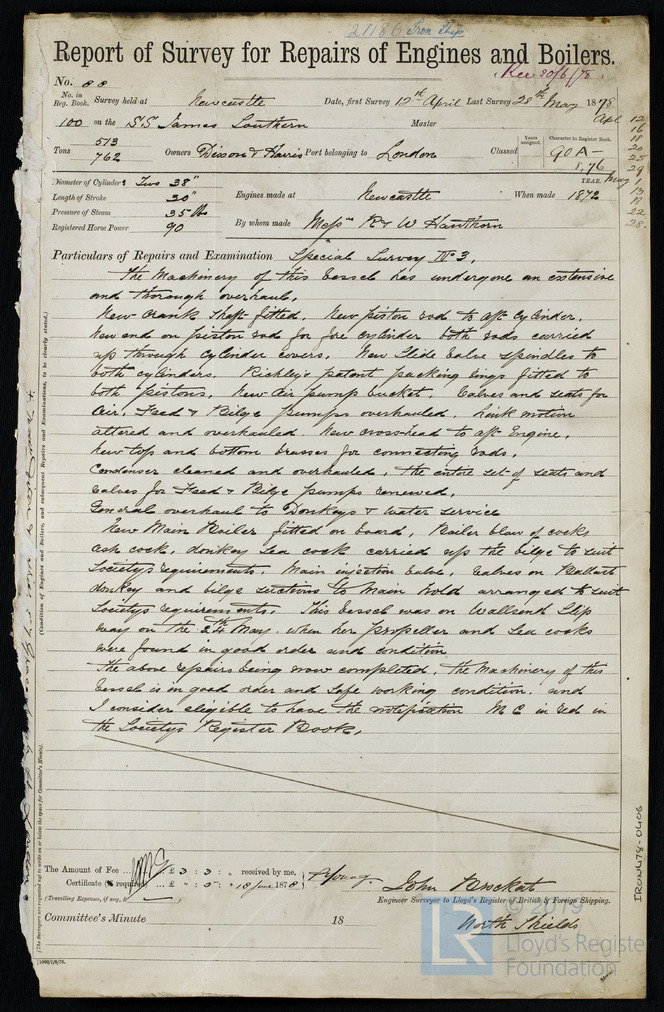 21186 Iron Ship
Report of Survey for Repairs of Engines and Boilers.
Rec 20/6/78
No. 88
No. in Reg. Book. Survey held at Newcastle Date, first Survey 12th April Last Survey 28th May 1878
100 on the SS James Southern Master
Tons 513
762 Owners Dixon & Harris Port belonging to London Classed Years assigned. Character in Register Book. 90 A-
1,76
YEAR.
Apl 12
16
18
20
25
29
May 1
13
18
22
28
Diameter of Cylinders Two 38"
Length of Stroke 30"
Pressure of Steam 35 lb
Registered Horse Power 90
Engines made at Newcastle When made 1872
By whom made Messrs R & W Hawthorn
Particulars of Repairs and Examination Special Survey No 3.
The Machinery of this Vessel has undergone an extensive
and thorough overhaul.
New Crank Shaft fitted. New piston rod to aft cylinder.
New end on piston rod for fore cylinder both rods carried
up through cylinder covers. New Slide Valve spindles to
both cylinders. patent packing rings fitted to
both pistons. New Air pump bucket. Valves and seats for
Air, Feed & Bilge pumps overhauled. Link motion
altered and overhauled. New cross-head to aft Engine.
New top and bottom brasses for connecting rods.
Condenser cleaned and overhauled. The entire set of seats and
Valves for Feed & Bilge pumps renewed.
General overhaul to Donkeys & water service
New Main Boiler fitted on board. Boiler blow off cocks
ash cock, donkey sea cock carried up the bilge to suit
Societys requirements. Main injection Valve, Valves on Ballast
donkey and bilge suctions to Main hold arranged to suit
Societys requirements. This Vessel was on Wallsend Slip
way on the 24th May when her propeller and Sea cocks
were found in good order and condition
The above repairs being now completed, the Machinery of this
Vessel is in good order and safe working condition. and
I consider eligible to have the notification M C in red in
the Societys Register Book.
(Condition of Engines and Boilers, and subsequent Repairs and Examinations, to be clearly stated.)
(The Surveyors are requested not to write on or below the space for Committee's Minute).
The Amount of Fee ... £ 3 : 3 : „ received by me,
Certificate (if required) ... £ „ : 5 : „ 18 June 1878
(Travelling Expenses, if any, £
Young
John Brockat
Engineer Surveyor to Lloyd's Register of British & Foreign Shipping.
North Shields
Committee's Minute 18
IRON478-0406
LR
© 2019
Lloyd's Register
Foundation